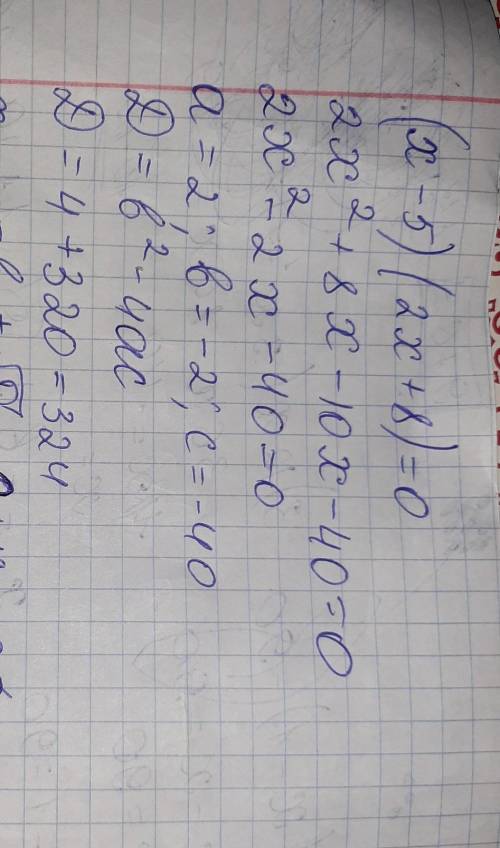 (x-5)(2x+8)=0
2x²+8x-10x-40=0
2x²-2x-40=0
a=2; b=-2; c=-40
D=b²-4ac
D=4+320=324